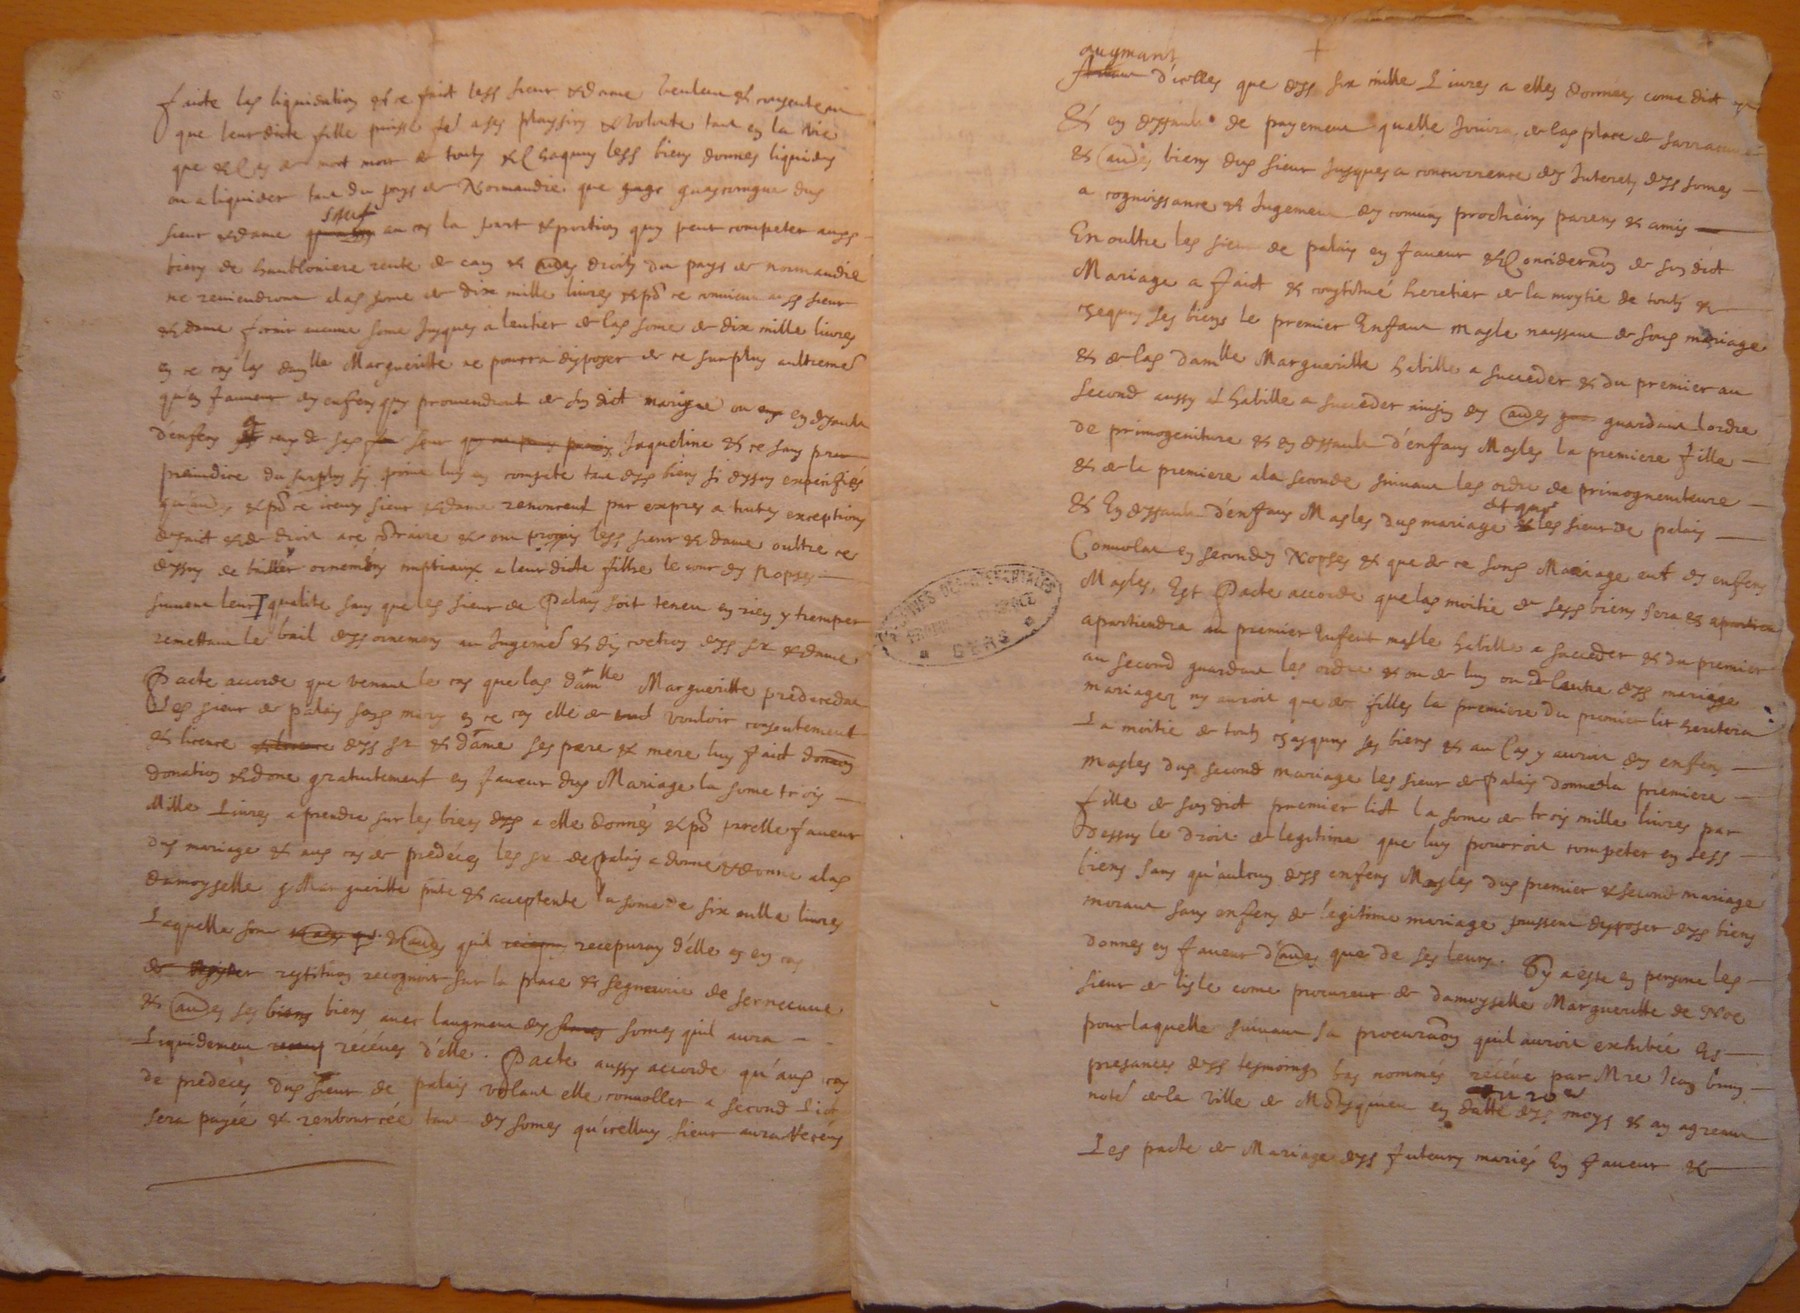 faicte las liquidation & ce faict less sieur & dame veulent & consentent
que leur dicte fille puisse fe a ses plaisirs & volonte tant en la vie
que en la mort de touts & chaquns less biens donnes liquides
ou a liquider tant du pays de Normandie que gascoigne dus
sieur & dame sauf au cas la part & portion quy peut competer auss
biens de haubloniere rente de caen & au(tr)es droits du pays de normandie
ne reviendront alas some de dix mille livres & po ce
& dame fornir aucune some jusques a lentier de las some de dix mille livres
en ce cas las damlle Margueritte ne pourra disposer de ce surplus aultreme
qu'en faveur des enfens quy proviendront de son dict mariage ou en deffaute
d'enfens de sas seur Jaqueline & ce sans
preiudice du surplus sy point luy en compete tant dess biens si dessus expecifiés
& po ce iceux sieur & dame renoncent par expres a toutes exceptions
de faict & de droit a ce contraire & ont promis less sieur & dame oultre ce
dessus de bailler ornemens nuptiaux a leur dicte fille le jour des nopses
suivant leur qualite sans que les sieur de Palais soit tenu en rien y tremper
remettant le bail dess ornemens au jugeme & discretion dess sr & dame
Pacte accorde que venant le cas que las damlle Margueritte predecedat
Les sieur de palais sons mary en ce cas elle de vouloir consentement
& licence dess sr & dame ses pere & mere luy faict
donation & done gratuitement en faveur dus Mariage la some trois
Mille Livres a prendre sur les biens a elle donnés & po pareille faveur
dus mariage & aus cas de predéces les sr de palais a donné & donne a las
damoyselle Margueritte pnte & acceptente la some de six mille livres
Laquelle some & au(tr)es quil recepuray d'elle en cas
de restituon recognoit sur la place & segneurie de
& au(tr)es ses biens avec laugment des somes quil aura
Liquidement recéues d'elle. Pacte aussy accorde qu'aus cas
de predeces dus sieur de palais volant elle convoller a second Lict
sera payée & rembourcée tant des somes qu'icelluy sieur aura recéues
augmant d'icelles que dess six mille Livres a elles donnees come dict
Et en deffaut de payement quelle Jouira de las place de
& au(tr)es biens dus sieur jusques a concurrence des Interets dess somes
a cognoissance & Jugement des comuns prochains parens & amis
En oultre les sieur de palais en faveur & Consideraon de son dict
Mariage a faict & constitué heretier de la moytie de touts &
ses biens le premier Enfant masle naissant de sons mariage
& de las damlle Margueritte habille a succeder & du premier au
second aussy habille a succeder ainsin des au(tr)es guardant l'ordre
de primogeniture & en deffaut d'enfans Masles la premiere fille
& de la premiere a la seconde suivant les ordre de primogeniteure
& En deffaut d'enfans Masles dus mariage & que les sieur de palais
Convolat en secondes Nopses & que de ce sons Mariage eut des enfens
Masles, Est Pacte accorde que las moitie de sess biens sera &
apartiendra au premier Enfent masle habille a succeder & du premier
au second guardant les ordre & ou de lun ou de lautre dess mariage
mariages ny auroit que de filles la premiere du premier lit heritera
La moitie de touts chasquns ses biens & au Cas y auroit des enfens
masles dus second mariage les sieur de palais donne a la premiere
fille de son dict premier lict la some de trois mille livres par
dessus le droit de legitime que luy pourroit competer en sess
biens sans qu'aulcun dess enfens Masles dus premier & second mariage
morant sans enfens de legitime mariage puissent disposer dess biens
donnes en faveur d'au(tr)es que de ses leurs. Sy a esse en persone les
sieur de lisle come procureur de damoyselle Margueritte de Noe
pour laquelle suivant sa procuraon quil auroit exhibée Es
presances dess tesmoings bas nommes recéue par Mre Jean brun
note de la ville de Montesquieu en datte du 20e des moys & an agreant
Les pacte de Mariage dess futeurs mariés En faveur &
ARCHIVES DEPARTEMENTALES
GERS